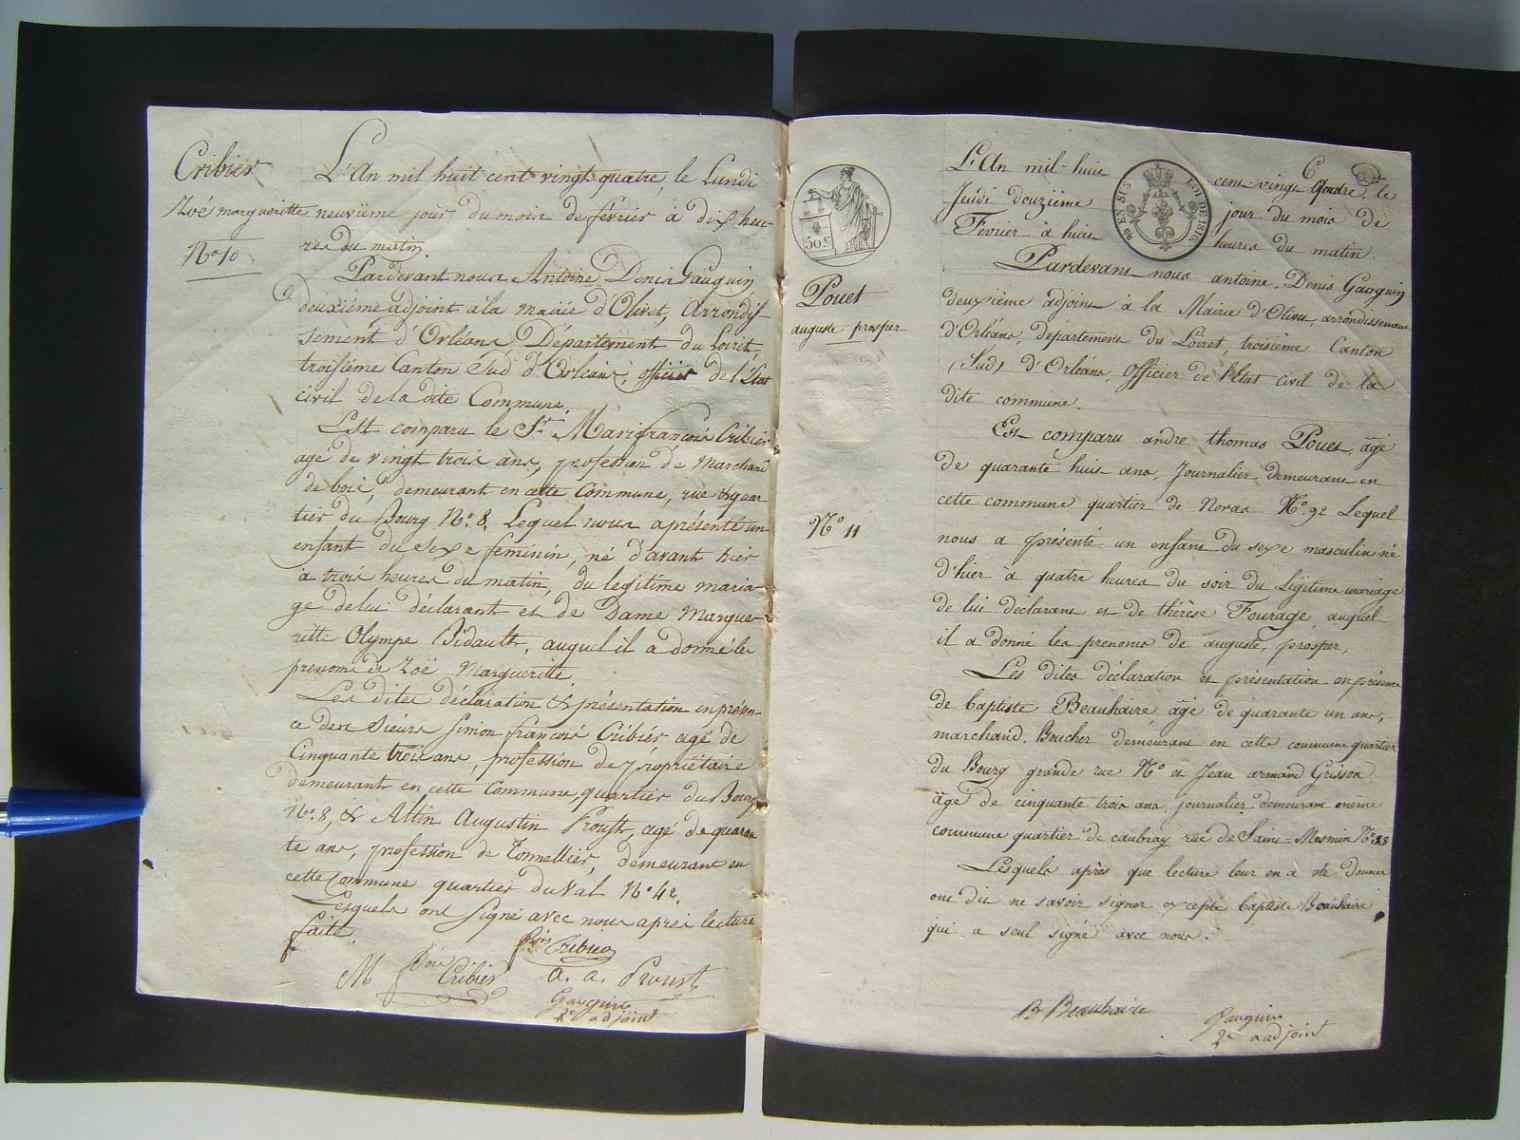 Cribier
Zoé marguerite
No 10
L'An mil huit cent vingt quatre, le Lundi
neuvième jour du mois de février à dix heu-
res du matin.
Pardevant nous Antoine Denis Gauguin
deuxième adjoint à la mairie d'Olivet, Arrondis-
sement d'Orléans Département du Loiret,
troisième Canton Sud d'Orléans, officier de l'Etat
civil de la dite Commune.
Est comparu le Sr. Mari françois Cribier
agé de vingt trois ans, profession de Marchand
de bois, demeurant en cette Commune, rue & quar
tier du Bourg No. 8. Lequel nous a présenté un
enfant du sexe feminin, né d'avant hier
à trois heures du matin, du legitime maria-
ge de lui déclarant et de Dame Margue-
ritte Olympe Bidault, auquel il a donné les
prenoms de Zoé Margueritte.
Les dites déclaration & présentation en présen-
ce des Sieurs Simon françois Cribier agé de
Cinquante trois ans, profession de propriétaire
demeurant en cette Commune, quartier du Bourg
No. 8, & Attin Augustin Proust, agé de quaran
te ans, profession de Tonnellier, demeurant en
cette Commune quartier du Val No. 42.
Lesquels ont signé avec nous après lecture
faite.
Cribier
M Cribier
a. a. Proust
Gauguin
2e adjoint
50c
Pouet
auguste prosper
No 11
L'An mil-huit cent vingt Quatre, le
Jeudi douzième jour du mois de
Fevrier à huit heures du matin.
Pardevant nous antoine Denis Gauguin
deuxième adjoint à la Mairie d'Olivet, arrondissement
d'Orléans, departement du Loiret, troisième Canton
(Sud) d'Orléans, Officier de l'Etat civil de la
dite commune.
Est comparu andre thomas Pouet, âgé
de quarante huit ans, Journalier, demeurant en
cette commune quartier de Noras No. 92 Lequel
nous a présenté un enfant du sexe masculin né
d'hier à quatre heures du soir du Légitime mariage
de lui déclarant et de thérèse Fourage, auquel
il a donné les prenoms de auguste, prosper.
Les dites déclaration et présentation en présence
de baptiste Beauhaire âgé de quarante un ans,
marchand Boucher demeurant en cette commune quartier
du Bourg grande rue No et Jean armand Grisson
âgé de cinquante trois ans, journalier demeurant même
commune quartier de caubray rue de Saint-Mesmin No.
Lesquels après que lecture leur en a été Donnée
ont dit ne savoir signer excepté baptiste Beauhaire
qui a seul signé avec nous.
B Beauhaire
Gauguin
2e adjoint